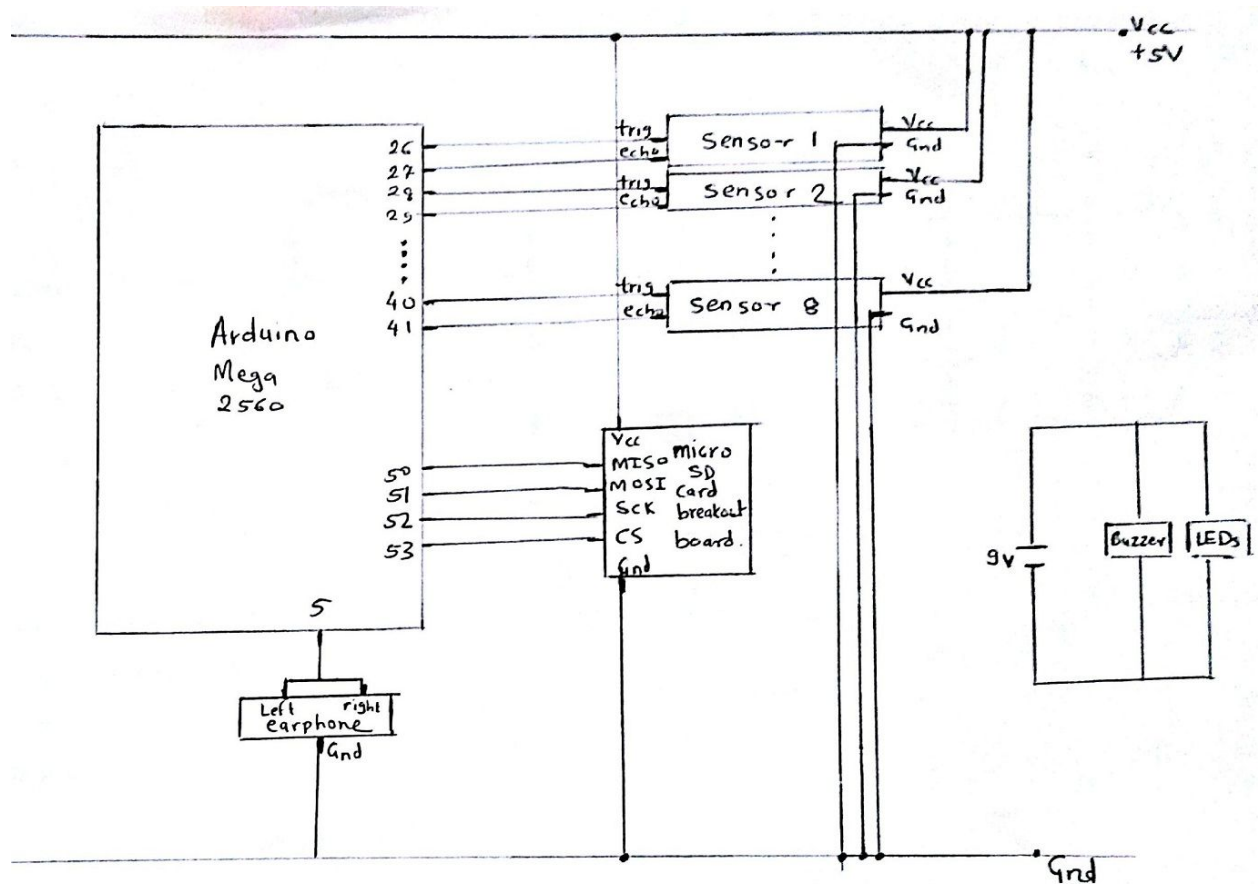 Vcc
+5V
26
27
28
29
40
41
Arduino
Mega
2560
50
51
52
53
5
trig
echo
Sensor 1
Vcc
Gnd
trig
echo
Sensor 2
Vcc
Gnd
trig
echo
Sensor 8
Vcc
Gnd
Vcc
MISO
MOSI
SCK
CS
Gnd
micro
SD
card
breakout
board.
Left right
earphone
Gnd
9V
Buzzer
LEDs
Gnd